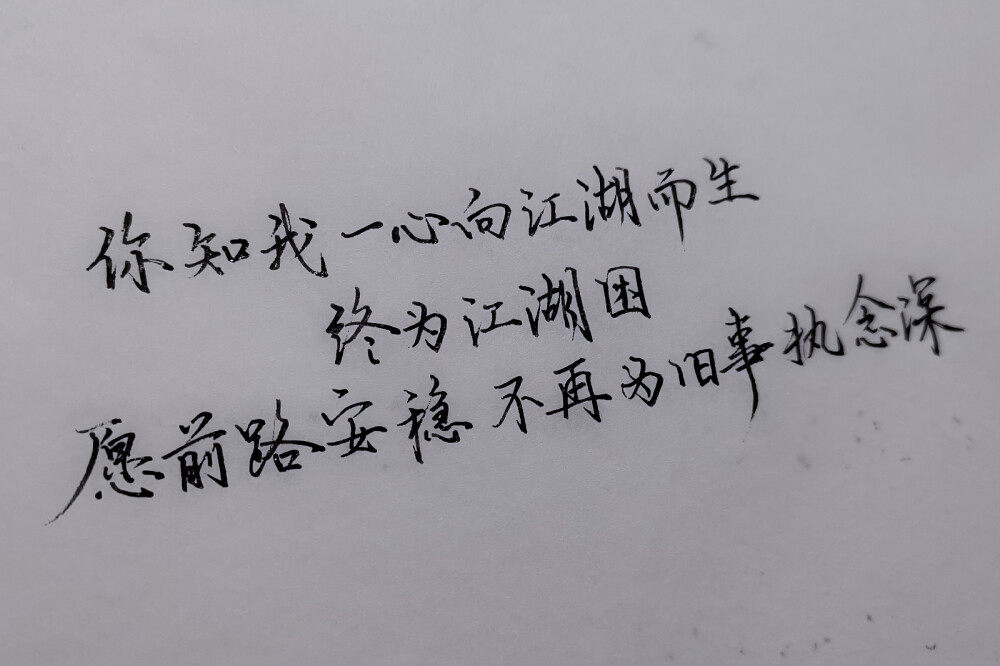 你知我一心向江湖而生
终为江湖困
愿前路安稳 不再为旧事执念深